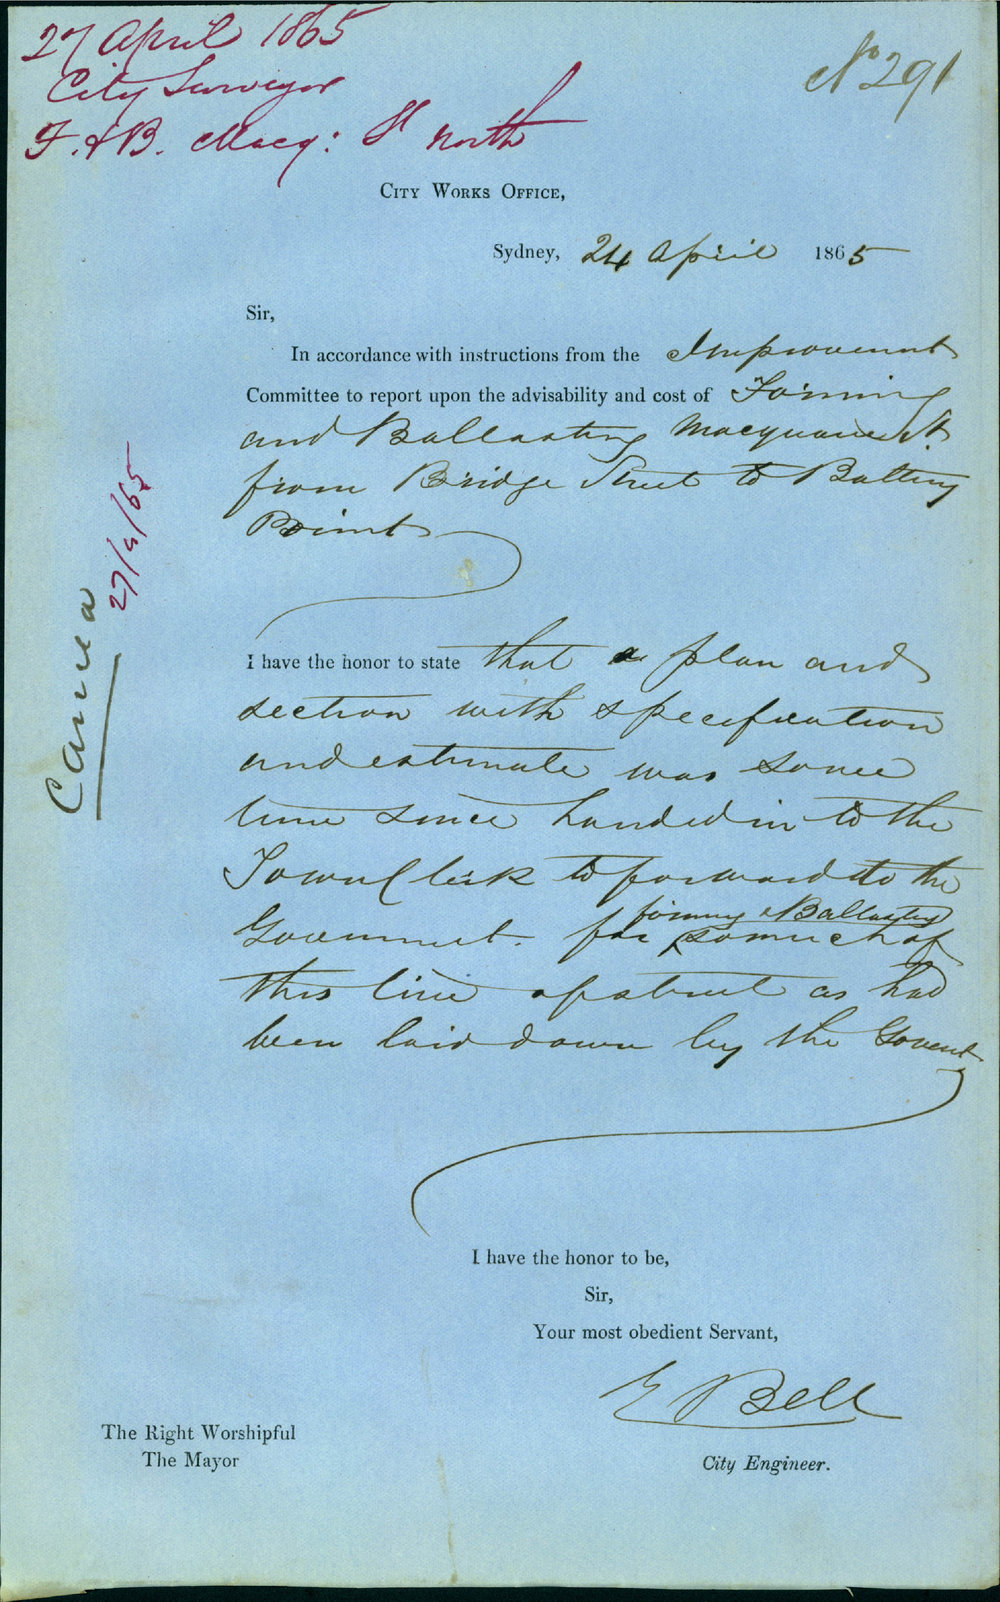 27 April 1865
City Surveyor
F. & B. Macq: St north
No 291
CITY WORKS OFFICE,
Sydney, 24 April 1865
Sir,
In accordance with instructions from the Improvement
Committee to report upon the advisability and cost of Forming
and Ballasting Macquarie St.
from Bridge Street to Battery
Point
27/4/65
I have the honor to state that a plan and
section with specification
and estimate was some
time since handed in to the
Town Clerk to forward to the
forming & Ballasting
Government. for so much of
this line of street as had
been laid down by the Govent
I have the honor to be,
Sir,
Your most obedient Servant,
E Bell
The Right Worshipful
The Mayor
City Engineer.